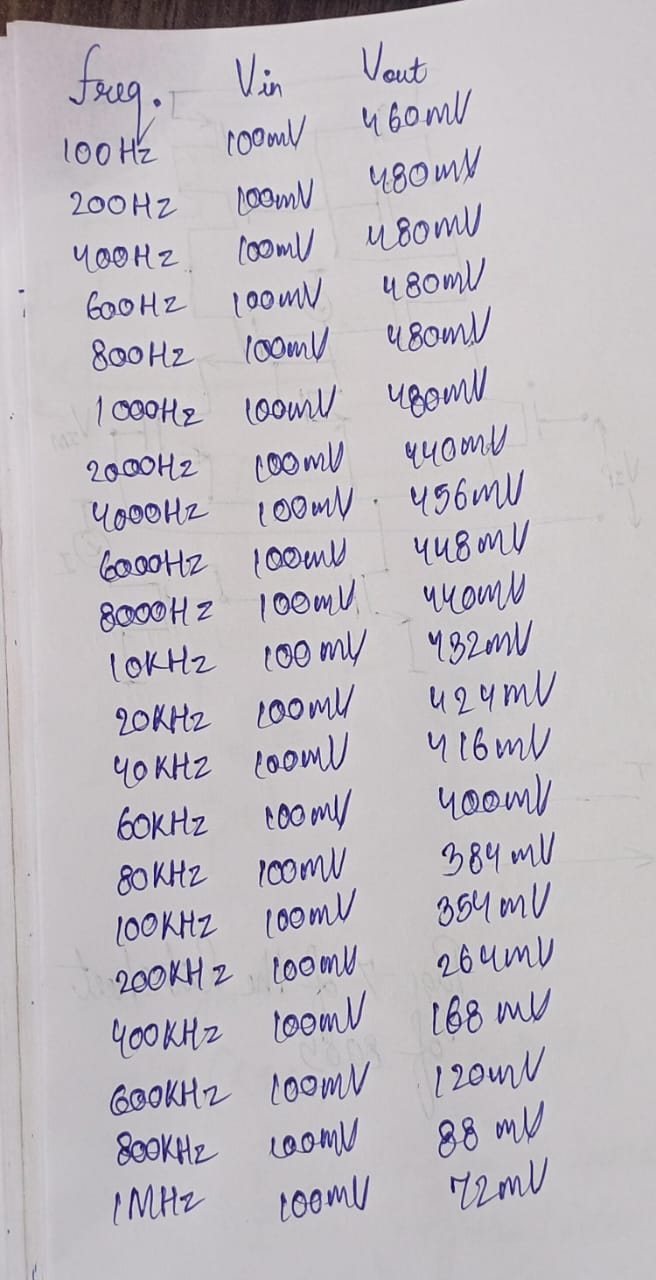 Freq. Vin Vout
100Hz 100mV 460mV
200Hz 100mV 480mV
400Hz 100mV 480mV
600Hz 100mV 480mV
800Hz 100mV 480mV
1000Hz 100mV 480mV
2000Hz 100mV 440mV
4000Hz 100mV 456mV
6000Hz 100mV 448mV
8000Hz 100mV 440mV
10KHz 100mV 432mV
20KHz 100mV 424mV
40KHz 100mV 416mV
60KHz 100mV 400mV
80KHz 100mV 384mV
100KHz 100mV 354mV
200KHz 100mV 264mV
400KHz 100mV 168mV
600KHz 100mV 120mV
800KHz 100mV 88mV
1MHz 100mV 72mV